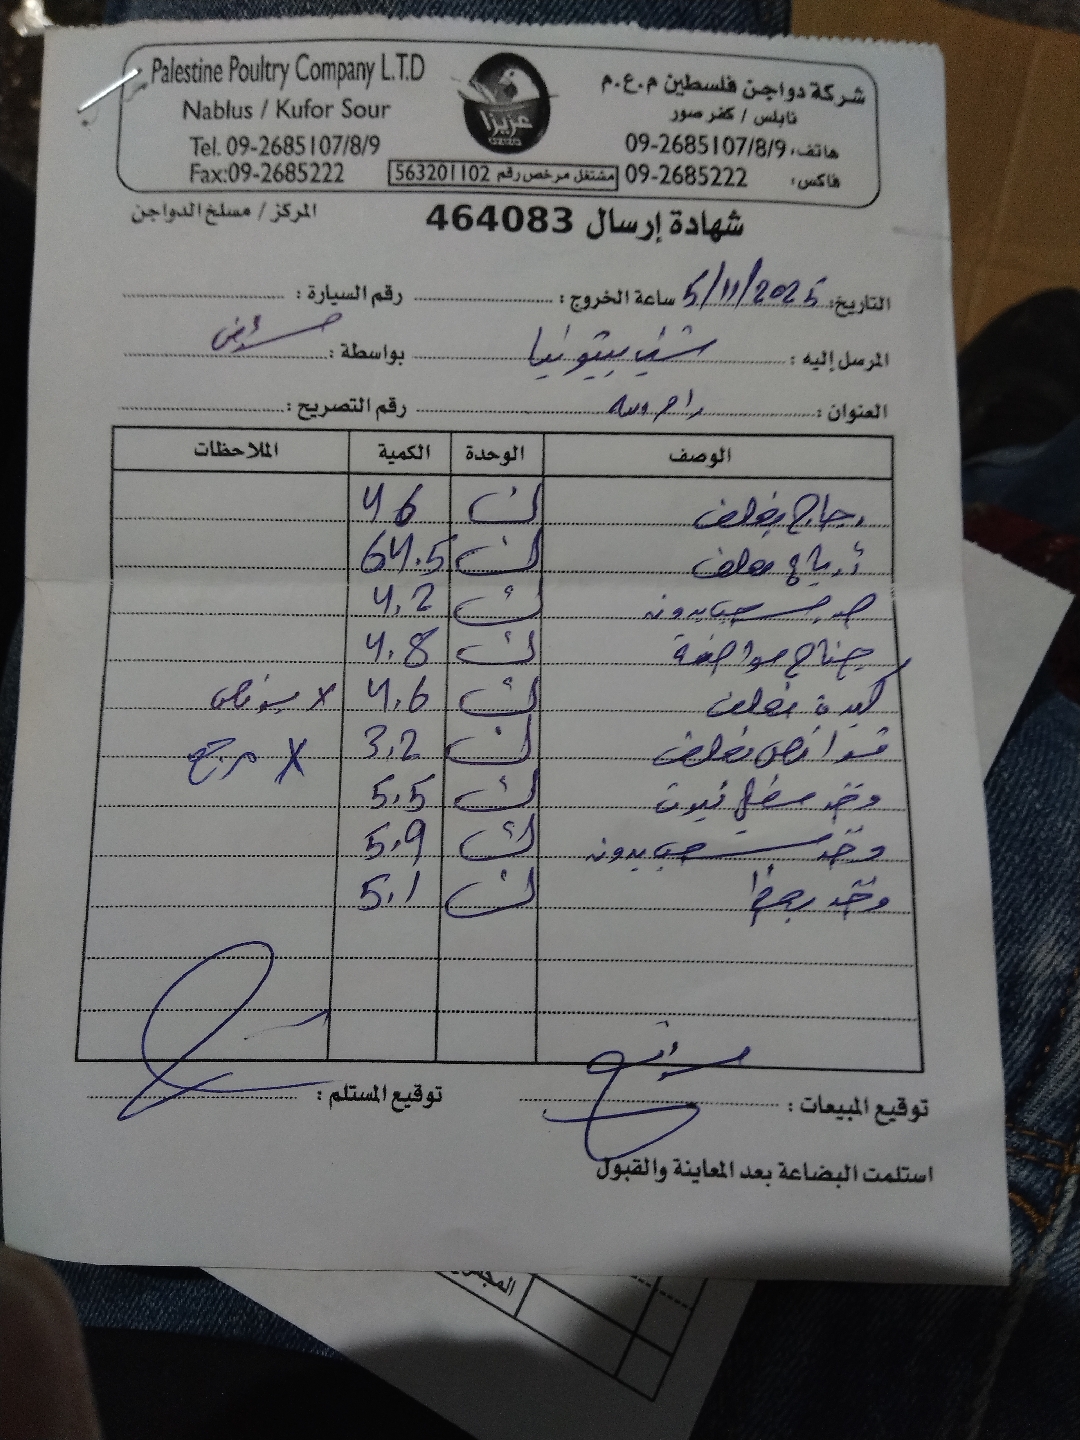 Palestine Poultry Company L.T.D
Nablus / Kufor Sour
Tel. 09-2685107/8/9
Fax:09-2685222
عزيزا
مشتغل مرخص رقم 563201102
شركة دواجن فلسطين م.ع.م
نابلس / كفر صور
هاتف: 09-2685107/8/9
فاكس: 09-2685222
شهادة إرسال 464083
المركز / مسلخ الدواجن
التاريخ: 5/11/2025 ساعة الخروج: رقم السيارة:
المرسل إليه: بيتونيا بواسطة:
العنوان: رام الله رقم التصريح:
الوصف الوحدة الكمية الملاحظات
دجاج مغلف ك 46
أرباع مغلف ك 64.5
صدر بدون ك 4.2
جناح ك 4.8
كبدة مغلف ك 4.6 X
قوانص مغلف ك 3.2 X مرجع
فخذ ك 5.5
فخذ بدون ك 5.9
فخذ ك 5.1
توقيع المبيعات: توقيع المستلم:
استلمت البضاعة بعد المعاينة والقبول